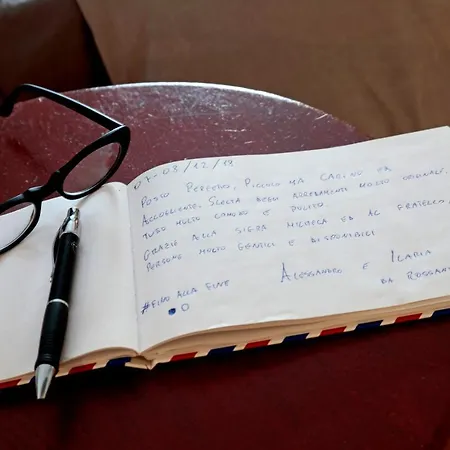 07-08/12/19
POSTO PERFETTO, PICCOLO MA CARINO ED
ACCOGLIENTE, SCELTA DEGLI ARREDAMENTI MOLTO ORIGINALE,
TUTTO MOLTO COMODO E PULITO.
GRAZIE ALLA SIG.RA MICHELA ED AL FRATELLO,
PERSONE MOLTO GENTILI E DISPONIBILI
ALESSANDRO E ILARIA
DA ROSSANO
#FINO ALLA FINE